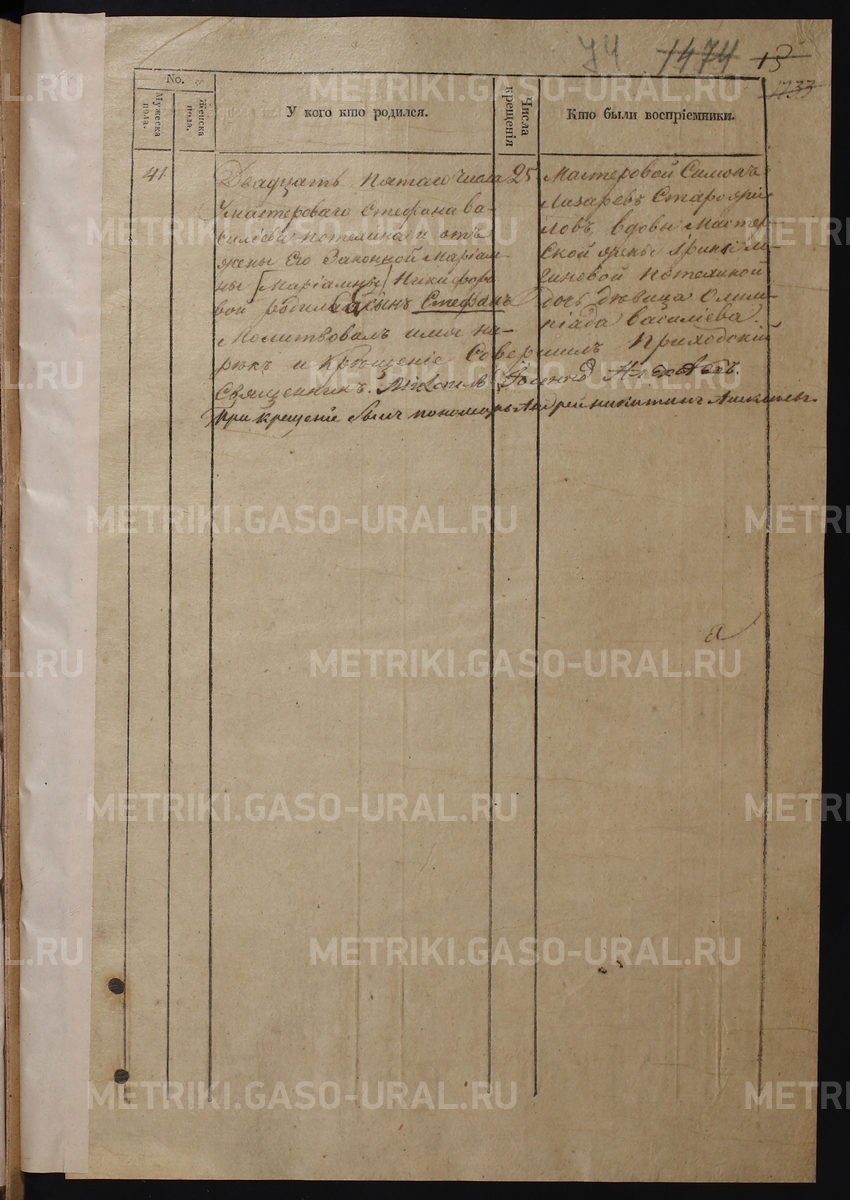 УЧ 1474 13
1733
No.
Мужеска пола.
Женска пола.
У кого кто родился.
Числа крещенія
Кто были воспріемники.
41
Двадцать пятаго числа
Умастероваго Стефана Ва-
сильева Потехина и отъ
жены Его Законной Маріам-
ны [Маріамны] Никифоро
вой родился сынъ Стефанъ
Молитвовалъ имя на-
рюк и крещеніе Совершилъ Приходскій
Священникъ
При крещеніе былъ пономарь Андрей Никитинъ
25
Мастеровой Симонъ
Лазаревъ Старо
ловъ вдовы Мастер
ской жены Ирины
Потехиной
дочь девица Олим-
піада Васильева
METRIKI.GASO-URAL.RU